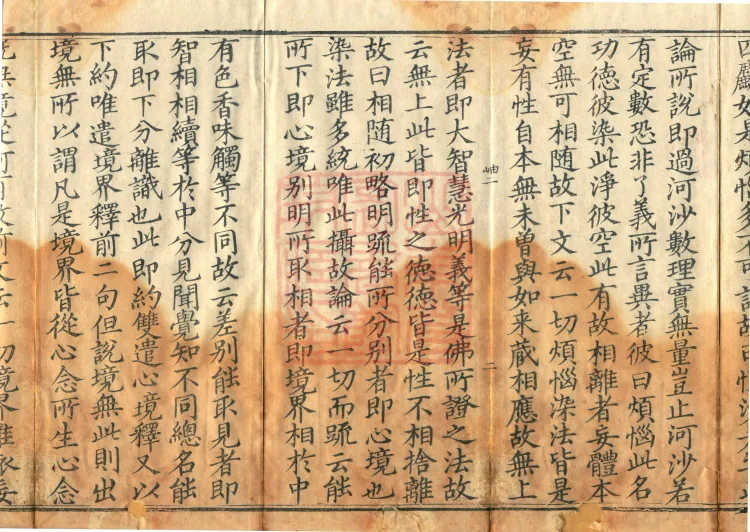 論所說即過河沙數理實無量豈止河沙若
有定數恐非了義所言異者彼曰煩惱此名
功徳彼染此淨彼空此有故相離者妄體本
空無可相随故下文云一切煩惱染法皆是
妄有性自本無未曽與如来蔵相應故無上
岫一
二
法者即大智慧光明義等是佛所證之法故
云無上此皆即性之徳徳皆是性不相捨離
故曰相随初略明䟽能所分别者即心境也
染法雖多統唯此攝故論云一切而䟽云能
所下即心境别明所取相者即境界相於中
有色香味觸等不同故云差别能取見者即
智相相續等於中分見聞覺知不同總名能
取即下分離識也此即約雙遣心境釋又以
下約唯遣境界釋前二句但說境無此則出
境無所以謂凡是境界皆從心念所生心念